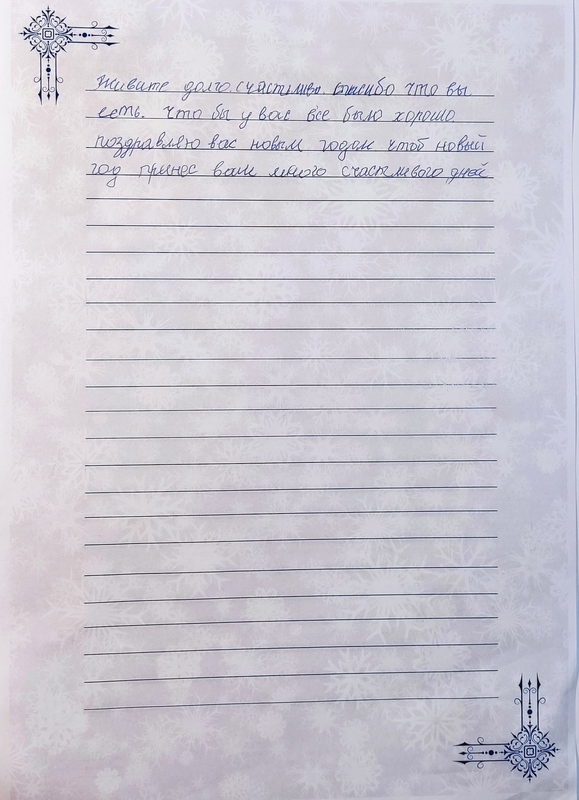 Живите долго. счастливо. спасибо что вы
есть. Что бы у вас все было хорошо
поздравляю вас новым годом чтоб новый
год принес вам много счастливого дней